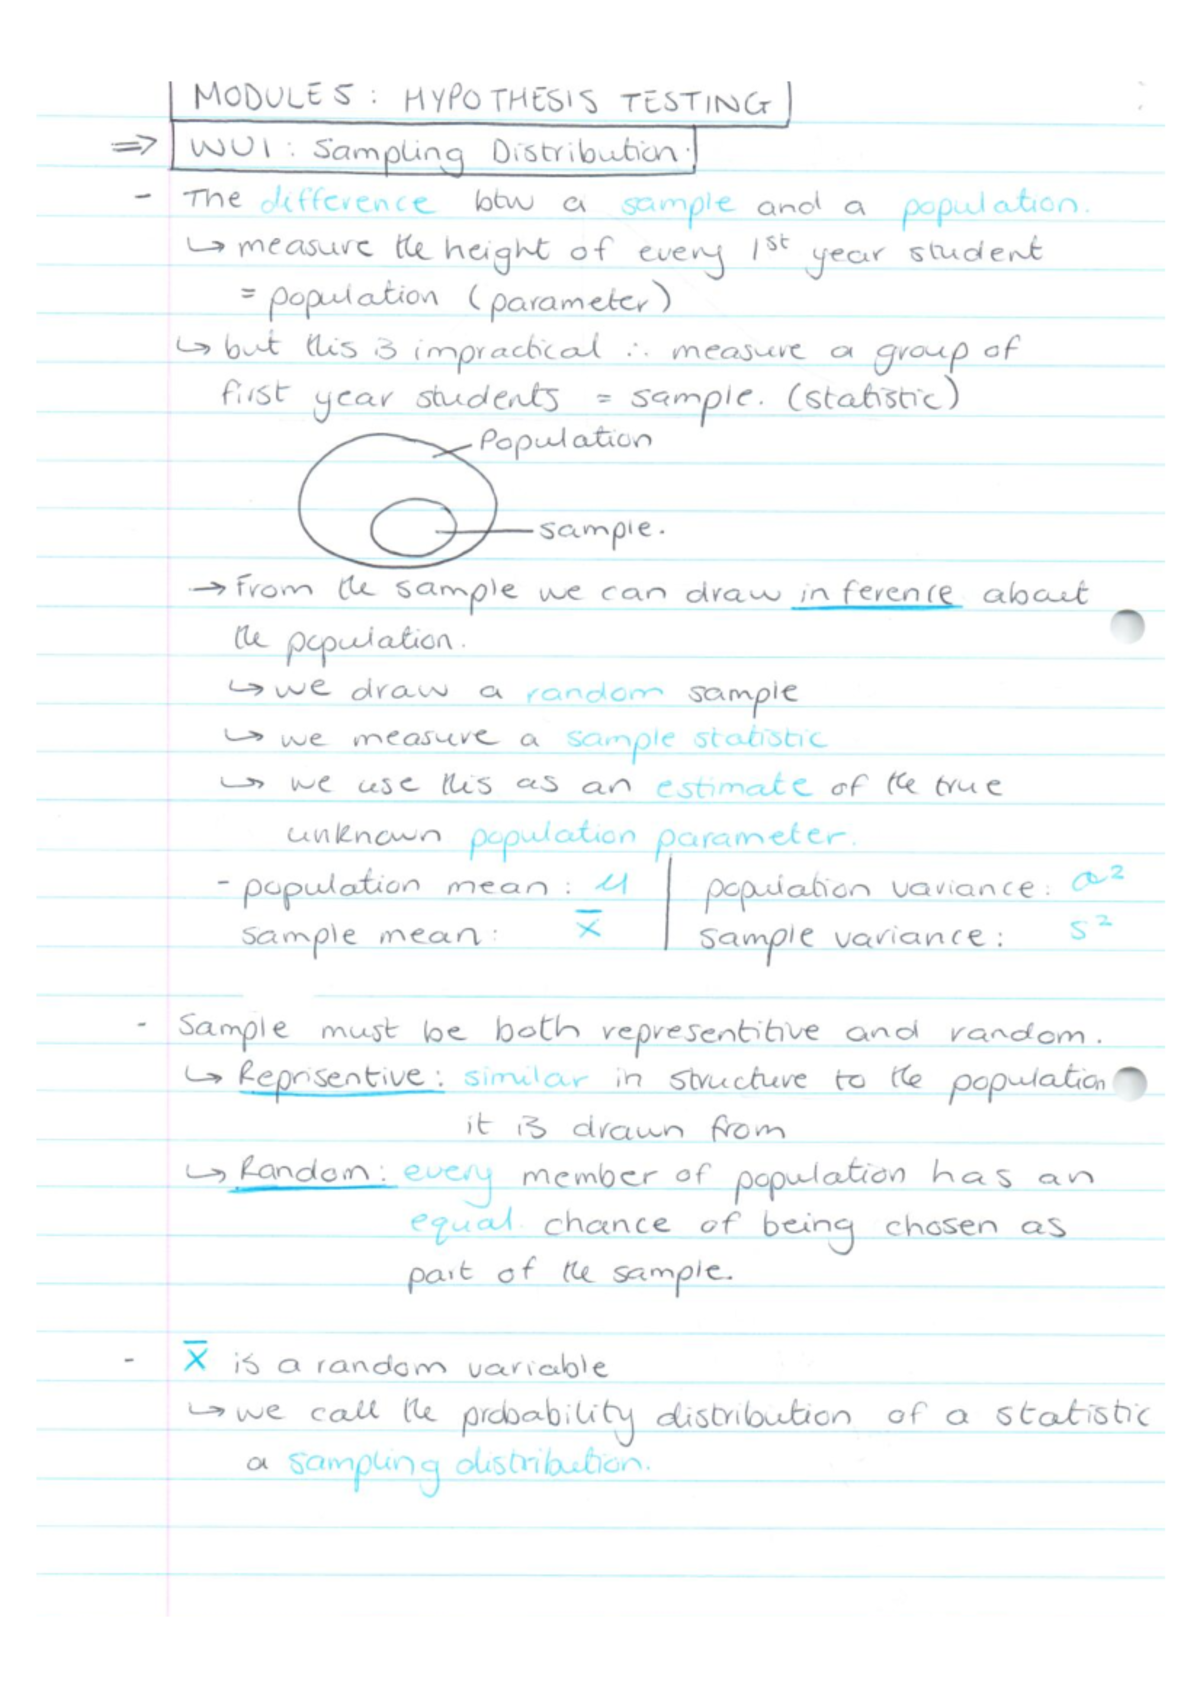 MODULE 5 : HYPOTHESIS TESTING
⇒ WU1 : Sampling Distribution.
- The difference btw a sample and a population.
↳ measure the height of every 1st year student
= population (parameter)
↳ but this is impractical ∴ measure a group of
first year students = sample. (statistic)
Population
sample.
→ From the sample we can draw inference about
the population.
↳ we draw a random sample
↳ we measure a sample statistic
↳ we use this as an estimate of the true
unknown population parameter.
- population mean : μ | population variance : σ²
sample mean : x̅ | sample variance : s²
- Sample must be both representitive and random.
↳ Reprisentive : similar in structure to the population
it is drawn from
↳ Random : every member of population has an
equal chance of being chosen as
part of the sample.
- x̅ is a random variable
↳ we call the probability distribution of a statistic
a sampling distribution.